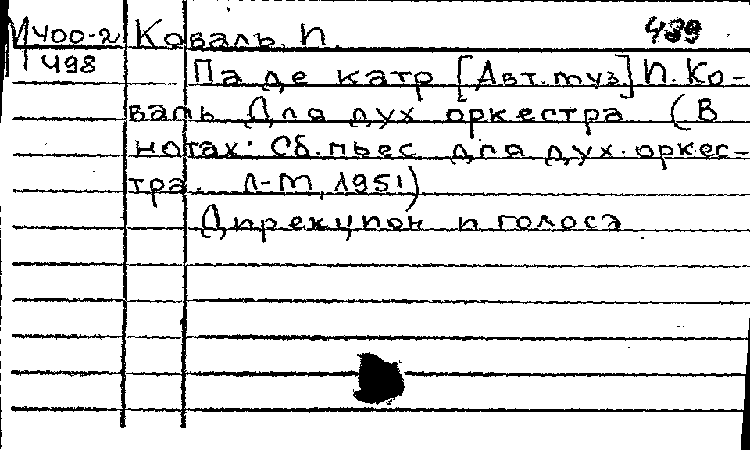 М400-2 Коваль, П. 489
498 Па де катр [Авт.муз] П. Ко-
валь Для дух оркестра (В
нотах: Сб. пьес для дух. оркес-
тра. Л-М, 1951)
Дирекцион и голоса